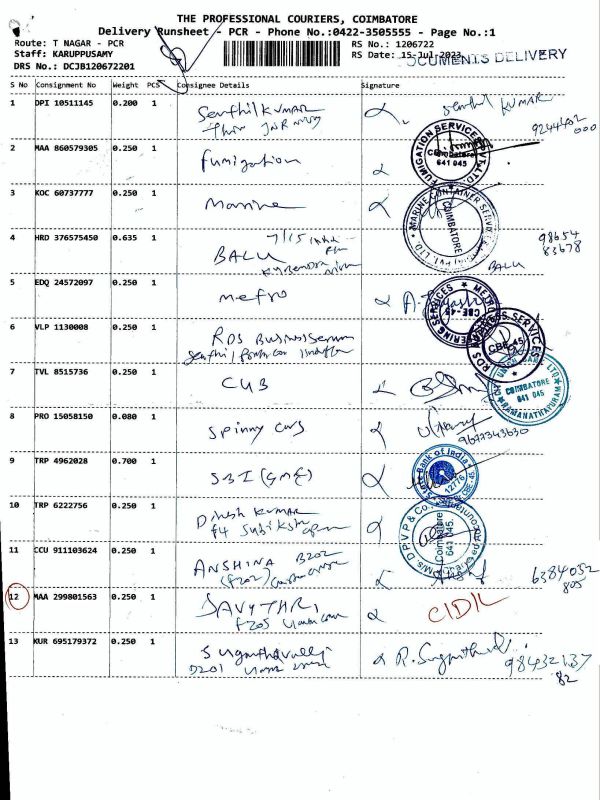 THE PROFESSIONAL COURIERS, COIMBATORE
Delivery Runsheet - PCR - Phone No.:0422-3505555 - Page No.:1
Route: T NAGAR - PCR
RS No.: 1206722
Staff: KARUPPUSAMY
RS Date: 15-Jul-2023
DOCUMENTS DELIVERY
DRS No.: DCJB120672201
S No Consignment No Weight PCS Consignee Details Signature
1 DPI 10511145 0.200 1 Senthil KUMAR
Senthil KUMAR
2 MAA 860579305 0.250 1 Fumigation
FUMIGATION SERVICES PVT. LTD.
Coimbatore
641 045
3 KOC 60737777 0.250 1 Marine
MARINE CONTAINER SERVICES PVT. LTD.
COIMBATORE
4 HRD 376575450 0.635 1 BALU
98654
83678
BALU
5 EDQ 24572097 0.250 1 metro
CBE-45
6 VLP 1130008 0.250 1 RDS Business
RDS BUSINESS SERVICES
CBE-45
7 TVL 8515736 0.250 1 CUB
COIMBATORE
641 045
RAMANATHAPURAM
8 PRO 15058150 0.080 1 Spinny cars
9677343630
9 TRP 4962028 0.700 1 SBI (SME)
State Bank of India
12776
10 TRP 6222756 0.250 1 Dinesh KUMAR
F4
M/s. D P V P & Co.
Coimbatore
641 045.
Chartered Accountants
11 CCU 911103624 0.250 1 ANSHINA B202
(F202)
6384032
805
12 MAA 299801563 0.250 1 SAVYTHRI
F205
13 KUR 695179372 0.250 1 Suganthavalli
D201
R. Suganthavalli
98432137
82